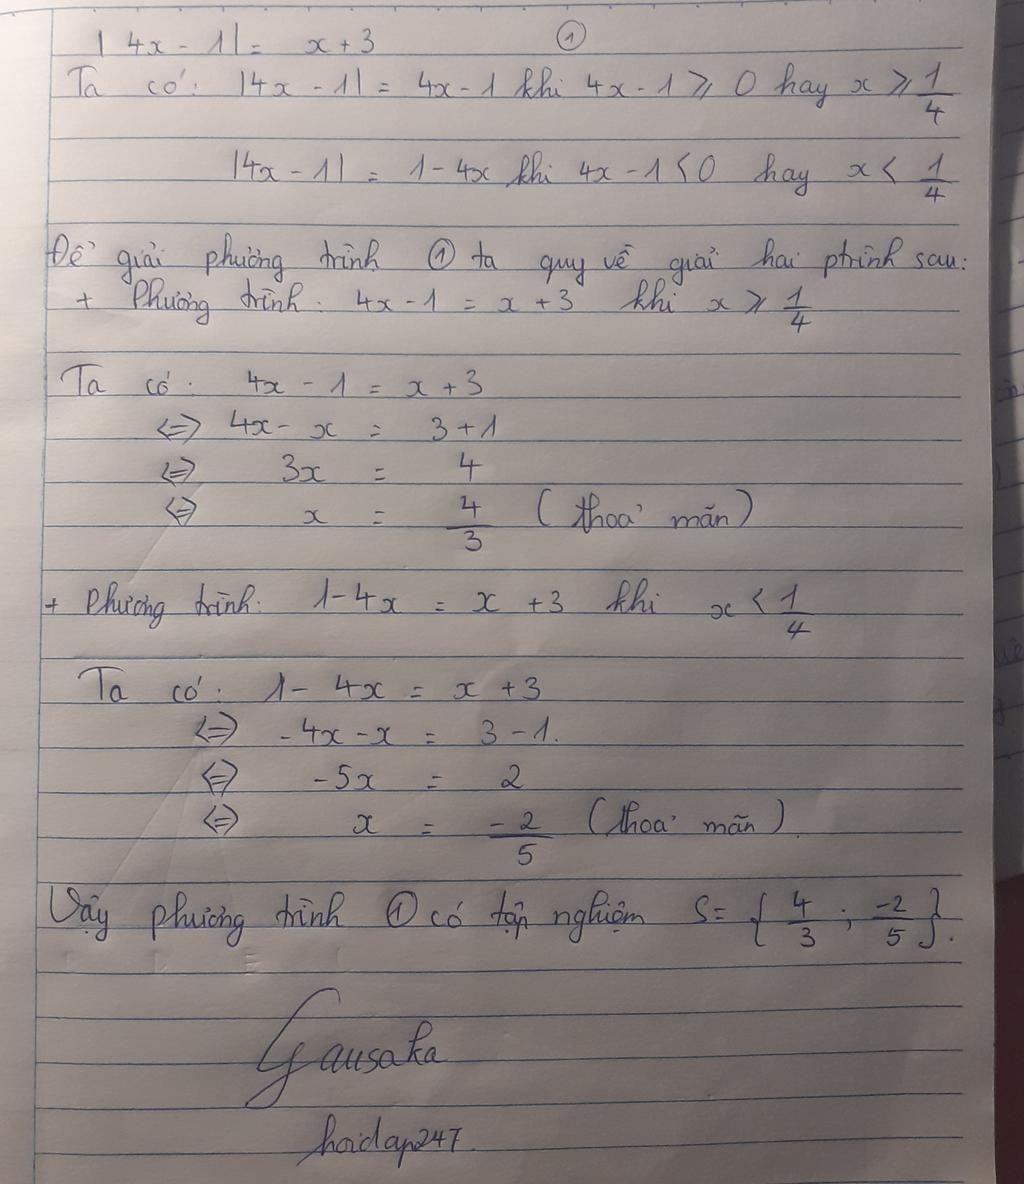 |4x - 1| = x + 3 ①
Ta có: |4x - 1| = 4x - 1 khi 4x - 1 ⩾ 0 hay x ⩾ 1/4
|4x - 1| = 1 - 4x khi 4x - 1 < 0 hay x < 1/4
Để giải phương trình ① ta quy về giải hai ptrình sau:
+ Phương trình: 4x - 1 = x + 3 khi x ⩾ 1/4
Ta có: 4x - 1 = x + 3
<=> 4x - x = 3 + 1
<=> 3x = 4
<=> x = 4/3 (thoả mãn)
+ Phương trình: 1 - 4x = x + 3 khi x < 1/4
Ta có: 1 - 4x = x + 3
<=> -4x - x = 3 - 1.
<=> -5x = 2
<=> x = -2/5 (thoả mãn).
Vậy phương trình ① có tập nghiệm S = {4/3 ; -2/5}.
Gausaka
hoidap247.